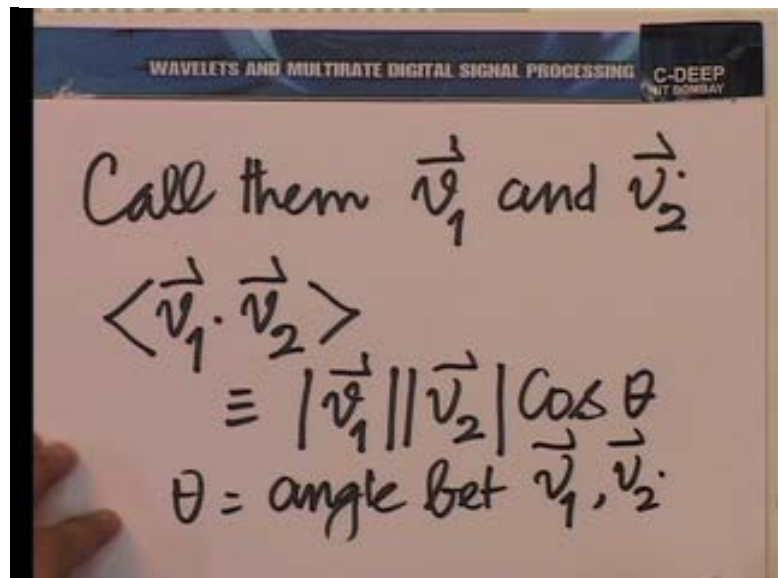 WAVELETS AND MULTIRATE DIGITAL SIGNAL PROCESSING
C-DEEP
IIT BOMBAY
Call them v⃗₁ and v⃗₂.
<v⃗₁ · v⃗₂>
≡ |v⃗₁||v⃗₂| Cos θ
θ = angle bet v⃗₁, v⃗₂.